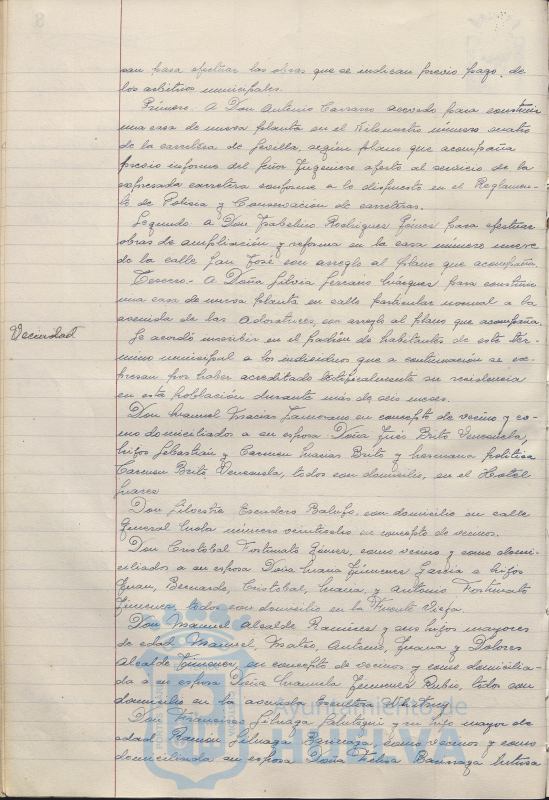 san para efectuar las obras que se indican previo pago de
los arbitrios municipales.
Primero. A Don Antonio Carrasco acevedo para construir
una casa de nueva planta en el Kilometro número cuatro
de la carretera de Sevilla, según plano que acompaña
previo informe del Señor Ingeniero afecto al servicio de la
expresada carretera conforme a lo dispuesto en el Reglamen-
to de Policia y Conservación de carreteras.
Segundo. a Don Isabelino Rodriguez Gómez para efectuar
obras de ampliación y reforma en la casa número nueve
de la calle San José con arreglo al plano que acompaña.
Tercero. A Doña Silvia Serrano Márquez para construir
una casa de nueva planta en calle particular normal a la
avenida de las Adoratrices, con arreglo al plano que acompaña.
Vecindad
Se acordó inscribir en el padrón de habitantes de este tér-
mino municipal a los individuos que a continuación se ex-
presan por haber acreditado su residencia
en esta población durante más de seis meses.
Don Manuel Macias Zamorano en concepto de vecino y co-
mo domiciliados a su esposa Doña Inés Brito Venezuela,
hijos Sebastián y Carmen Macias Brito y hermana politica
Carmen Brito Venezuela, todos con domicilio, en el Hotel
Suarez
Don Silvestre Escudero con domicilio en calle
General Mola número en concepto de vecinos.
Don Cristobal Fortunato Gómez, como vecino y como domi-
ciliados a su esposa Doña Maria Jimenez Garcia e hijos
Juan, Bernardo, Cristobal, Maria, y Antonio Fortunato
Jimenez, todos con domicilio en la Fuente Vieja.
Don Manuel Alcalde Ramirez y sus hijos mayores
de edad Manuel, Mateo, Antonio, Juana y Dolores
Alcalde Jimenez, en concepto de vecinos y como domicilia-
da a su esposa Doña Manuela Jimenez Rubio, todos con
domicilio en la
Don Francisco y su hijo mayor de
edad Ramón como vecinos y como
domiciliada su esposa Doña Felisa
Ayuntamiento de
HUELVA